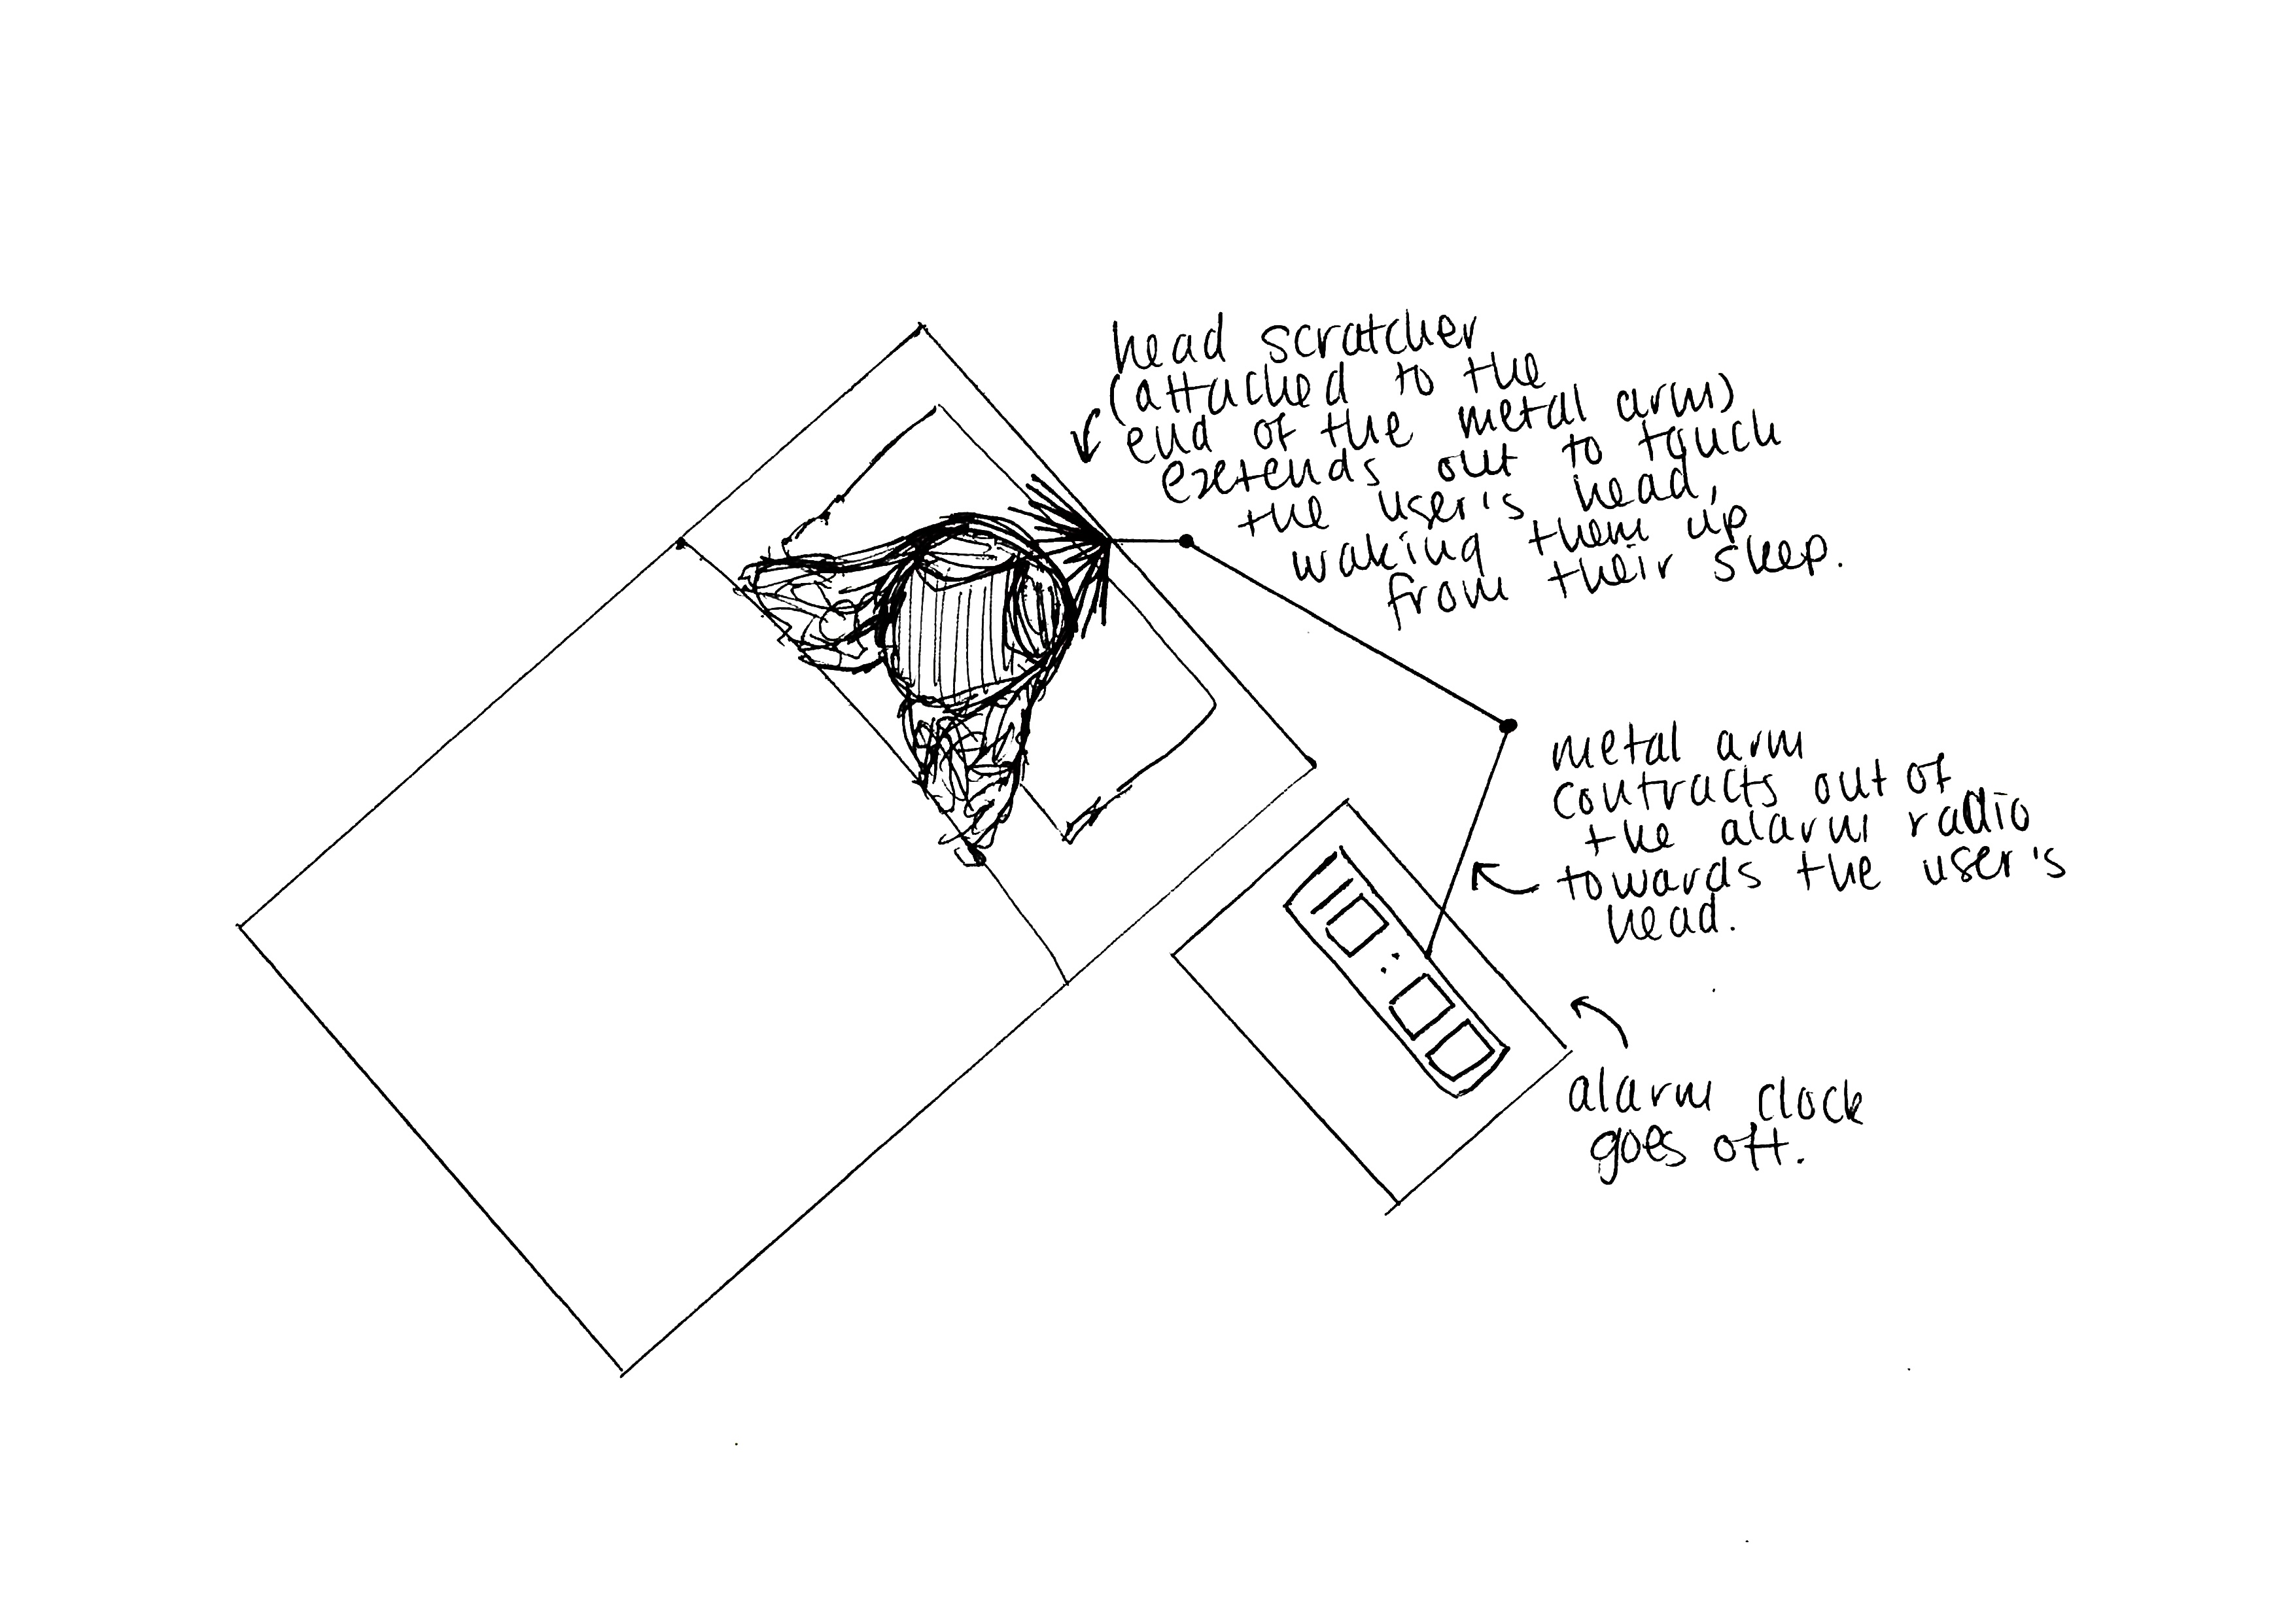 head scratcher
(attached to the
end of the metal arm)
extends out to touch
the user's head,
waking them up
from their sleep.
metal arm
contracts out of
the alarm radio
towards the user's
head.
10:00
alarm clock
goes off.